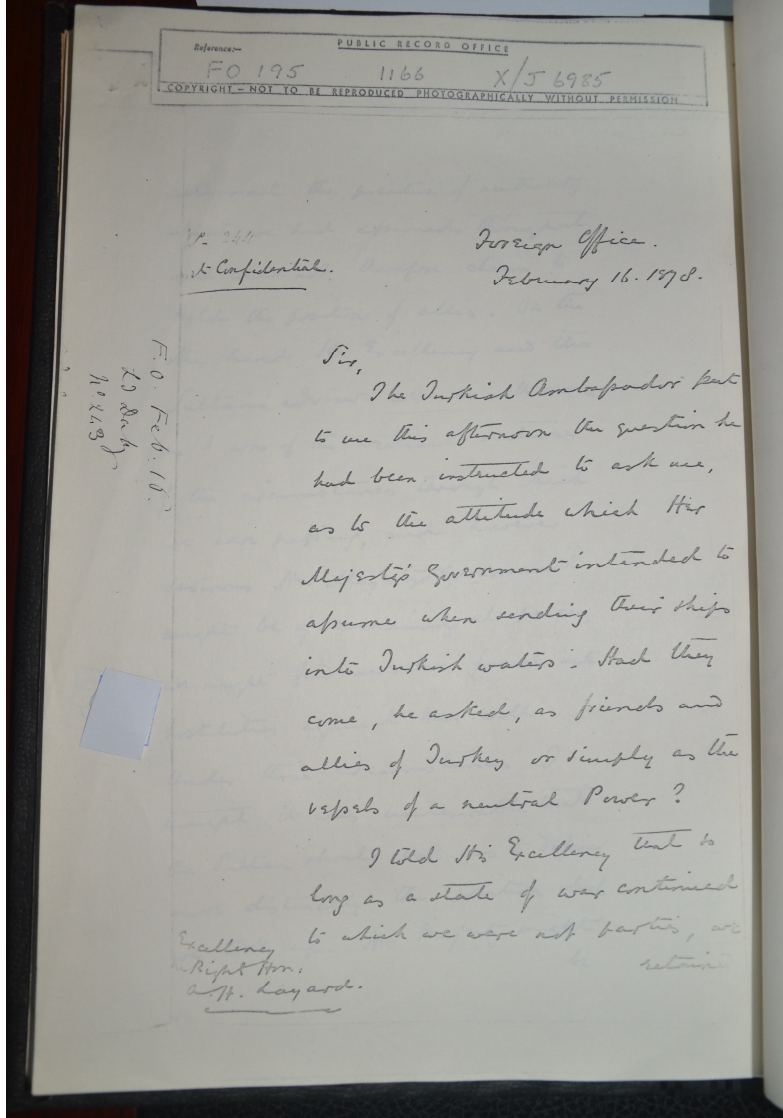 Reference:-
PUBLIC RECORD OFFICE
FO 195 1166 X/J 6985
COPYRIGHT - NOT TO BE REPRODUCED PHOTOGRAPHICALLY WITHOUT PERMISSION
Foreign Office.
Confidential.
February 16. 1878.
F.O. Feb. 16.
No. 243
Sir,
The Turkish Ambassador put
to me this afternoon the question he
had been instructed to ask me,
as to the attitude which Her
Majesty's Government intended to
assume when sending their ships
into Turkish waters. Had they
come, he asked, as friends and
allies of Turkey or simply as the
vessels of a neutral Power?
I told His Excellency that so
long as a state of war continued
to which we were not parties, we
retain
Excellency
Right Hon:
A. H. Layard.